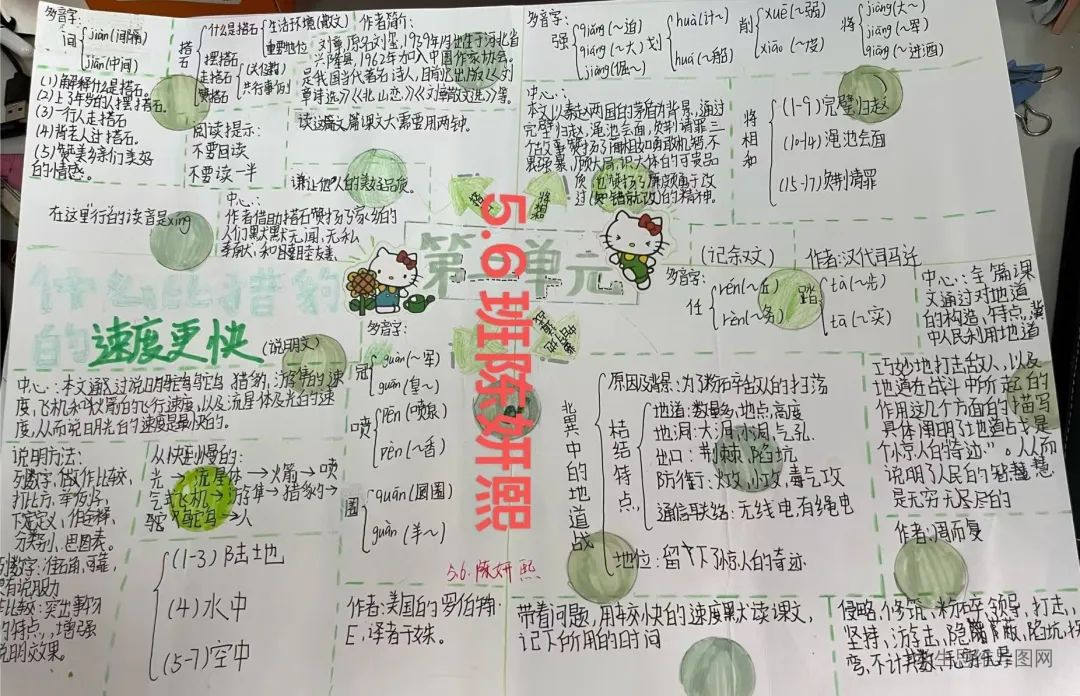 多音字:
间
jiàn(间隔)
jiān(中间)
(1)解释什么是搭石。
(2)上了年岁的人摆搭石。
(3)一行人走搭石
(4)背老人过搭石。
(5)赞美乡亲们美好
的情感。
搭石
什么是搭石
摆搭石
走搭石
赞搭石
生活环境(散文)
重要地位
阅读提示:
不要回读
不要读一半
作者简介:
刘章,原名刘玺,1939年
兴隆县,1962年加入中国作家协会。
是我国当代著名诗人,日前已出版《刘
章诗选》《北山恋》《刘章散文选》等。
读这篇文篇课文大需要用两钟。
谦让他人的美好品质。
在这里“行”的读音是xíng
中心:
作者借助搭石赞扬了家乡的
人们默默无闻、无私
奉献、和睦友善。
多音字:
强
qiǎng(~迫)
qiáng(~大)
jiàng(倔~)
划
huà(计~)
huá(~船)
削
xuē(~弱)
xiāo(~皮)
将
jiāng(大~)
jiàng(~军)
qiāng(~进酒)
中心:
本文以秦赵两国的矛盾为背景,通过
完璧归赵,渑池会面,负荆请罪三
个故事,赞扬了蔺相如勇敢机智、不
畏强暴,顾大局,识大体的可贵品
质,也赞扬了廉颇勇于改
过(知错就改)的精神。
将相和
(1-9)完璧归赵
(10-14)渑池会面
(15-17)负荆请罪
(记叙文)
作者:汉代司马迁
第二单元
搭石
将相
5.6班陈妍熙
什么比猎豹
的速度更快
(说明文)
中心:本文通过说明鸵鸟、猎豹、游隼的速
度,飞机和火箭的飞行速度,以及流星体及光的速
度,从而说明光的速度是最快的。
说明方法:
列数字、做比较、
打比方、举例子、
下定义、作诠释、
分类别、画图表。
列数字:准确、可靠、
有说明力
作比较:突出事物
的特点,增强
说明效果。
从快到慢的:
光→流星体→火箭→喷
气式飞机→游隼→猎豹→
鸵鸟→人
(1-3)陆地
(4)水中
(5-7)空中
多音字:
冠
guàn(~军)
guān(皇~)
喷
pēn(喷泉)
pèn(~香)
圈
quān(圆圈)
juàn(羊~)
作者:美国的罗伯特·
E,译者于姝。
5.6.陈妍熙
多音字:
任
rén(~丘)
rèn(~务)
踏
tà(~步)
tā(~实)
中心:全篇课
文通过对地道
的构造、特点、冀
中人民利用地道
巧妙地打击敌人,以及
地道在战斗中所起的
作用这几个方面的描写
具体阐明了地道战是
“惊人的奇迹”。从而
说明了人民的智慧
是无穷无尽的
作者:周而复
冀中的地道战
原因及背景:为了粉碎敌人的扫荡
结特点
地道:数量多,地点,高度
地洞:大洞,小洞,气孔.
出口:荆棘,陷坑
防御:火攻,水攻,毒气攻
通信联络:无线电,有绳电
地位:留下了惊人的奇迹.
带着问题,用较快的速度默读课文,
记下所用的时间
侵略、修筑、粉碎、领导、打击、
坚持、游击、隐蔽、陷坑、拐
弯、不计其数、无穷无尽